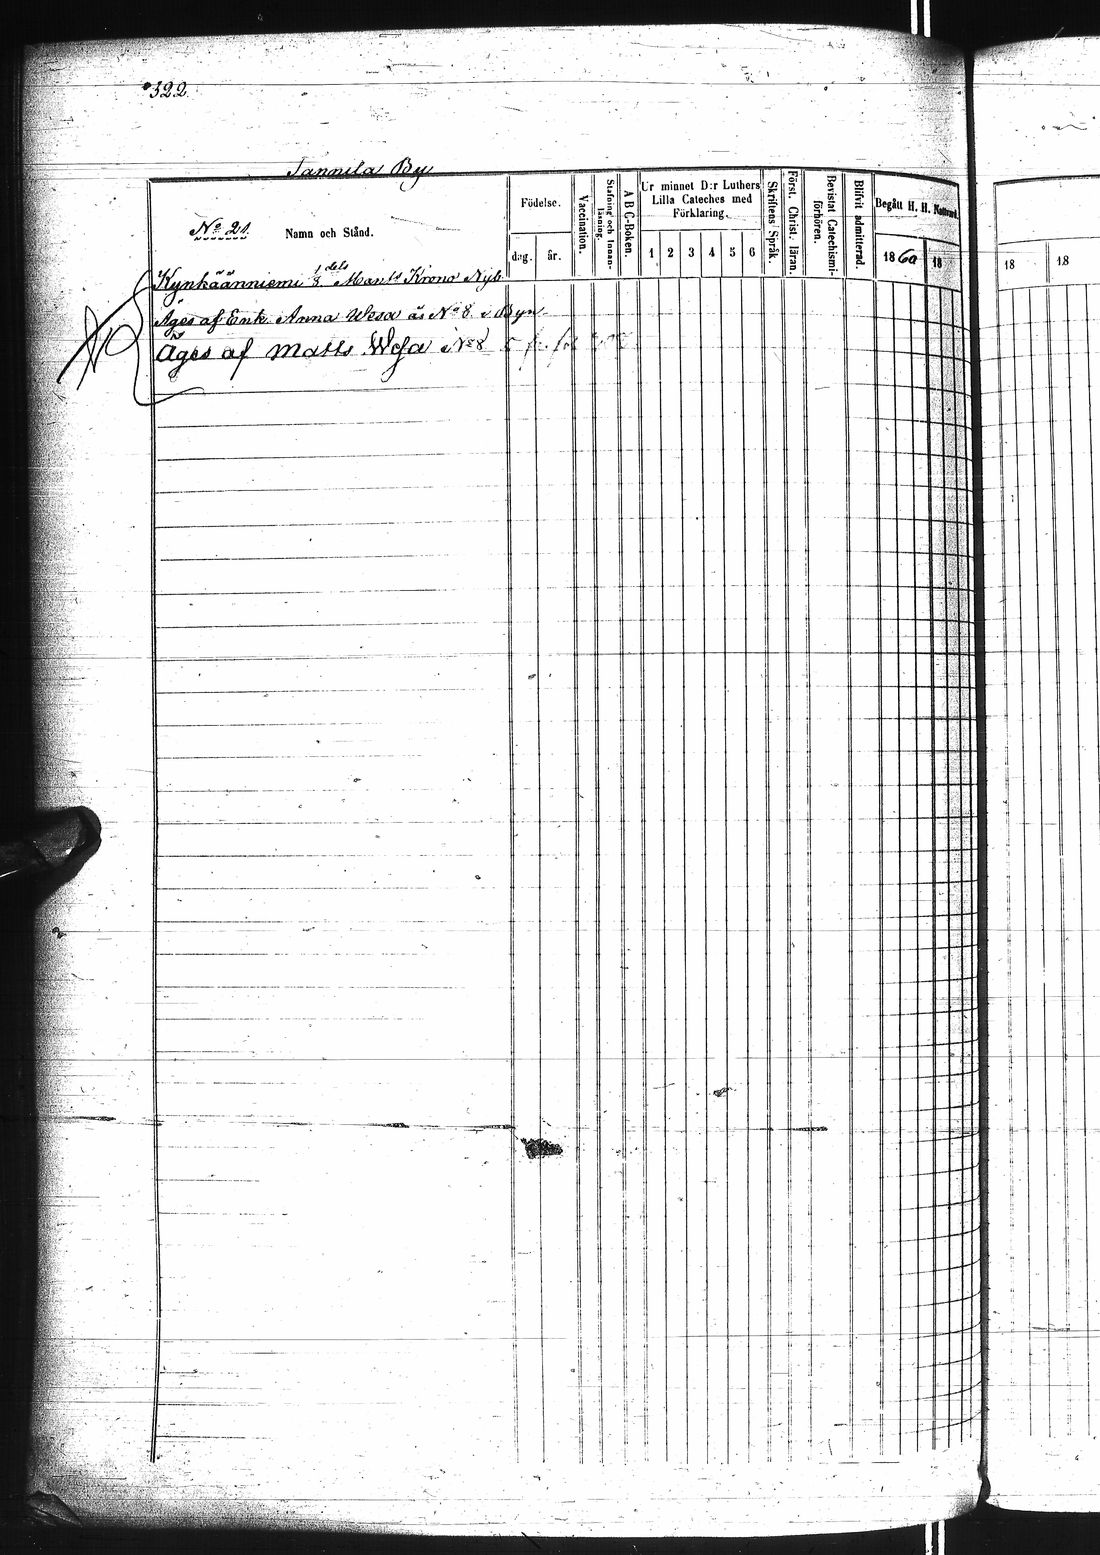 322
Tannila By
Nº 21.
Namn och Stånd.
Födelse.
dag. år.
Vaccination.
Stafning och Innanläsning.
A B C-Boken.
Ur minnet D:r Luthers
Lilla Cateches med
Förklaring.
1 2 3 4 5 6
Skriftens Språk.
Först. Christ. läran.
Bevistat Catechismi-förhören.
Blifvit admitterad.
Begått H. H. Nattvard.
1860 18
18 18
Kynkäänniemi 1/8 dels Mant. Krono Nyb.
Äges af Enk. Anna Wesa ås Nº 8 i Byn
Äges af Matts Wesa i Nº 8